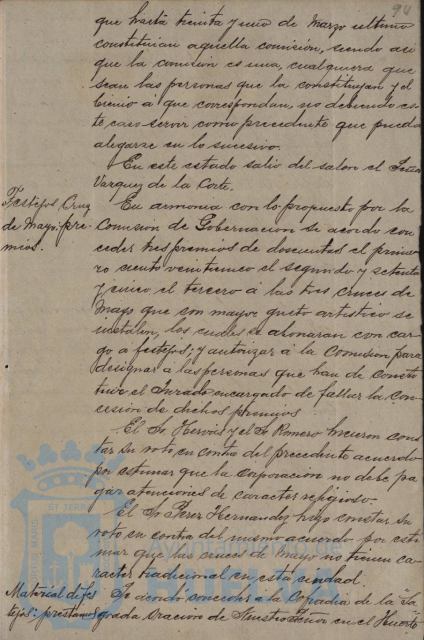 94
que hasta treinta y uno de Marzo ultimo
constituian aquella comisión, siendo asi
que la comision es una, cualquiera que
sean las personas que la constituyan y el
bienio á que correspondan, no debiendo es-
te caso servir como precedente que pueda
alegarse en lo sucesivo.
En este estado salio del salon el Señor
Vazquez de la Corte.
Festejos Cruz
de Mayo: pre-
mios.
En armonia con lo propuesto por la
Comisión de Gobernacion se acordo con-
ceder tres premios de doscientas el prime-
ro ciento veinticinco el segundo y setenta
y cinco el tercero á las tres cruces de
Mayo que con mayor gusto artistico se
instalen, los cuales se abonaran con car-
go a festejos; y autorizar á la Comision para
designar a las personas que han de consti-
tuir el Jurado encargado de fallar la con-
cesión de dichos premios.
El Sr Hervás y el Sr Romero hicieron cons-
tar su voto en contra del precedente acuerdo
por estimar que la Corporacion no debe pa-
gar atenciones de caracter religioso.
El Sr Perez Hernandez hizo constar su
voto en contra del mismo acuerdo por esti-
mar que las cruces de Mayo no tienen ca-
racter tradicional en esta ciudad.
Material de fes-
tejos: prestamos
Se acordó conceder á la Cofradia de la Sa-
grada Oracion de Nuestro Señor en el Huerto